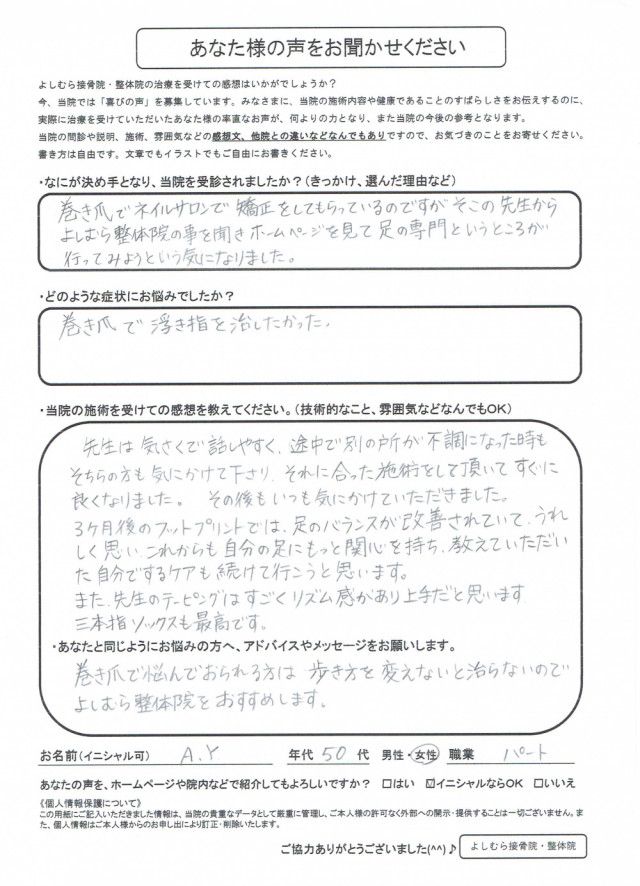 あなた様の声をお聞かせください
よしむら接骨院・整体院の治療を受けての感想はいかがでしょうか？
今、当院では「喜びの声」を募集しています。みなさまに、当院の施術内容や健康であることのすばらしさをお伝えするのに、
実際に治療を受けていただいたあなた様の率直なお声が、何よりの力となり、また当院の今後の参考となります。
当院の問診や説明、施術、雰囲気などの感想文、他院との違いなどなんでもありですので、お気づきのことをお寄せください。
書き方は自由です。文章でもイラストでもご自由にお書きください。
・なにが決め手となり、当院を受診されましたか？（きっかけ、選んだ理由など）
巻き爪でネイルサロンで矯正をしてもらっているのですがそこの先生から
よしむら整体院の事を聞きホームページを見て足の専門というところが
行ってみようという気になりました。
・どのような症状にお悩みでしたか？
巻き爪で浮き指を治したかった。
・当院の施術を受けての感想を教えてください。（技術的なこと、雰囲気などなんでもOK）
先生は気さくで話しやすく、途中で別の所が不調になった時も
そちらの方も気にかけて下さり、それに合った施術をして頂いてすぐに
良くなりました。 その後もいつも気にかけていただきました。
3ケ月後のフットプリントでは、足のバランスが改善されていて、うれ
しく思い、これからも自分の足にもっと関心を持ち、教えていただい
た自分でするケアも続けて行こうと思います。
また、先生のテーピングはすごくリズム感があり上手だと思います
三本指ソックスも最高です。
・あなたと同じようにお悩みの方へ、アドバイスやメッセージをお願いします。
巻き爪で悩んでおられる方は歩き方を変えないと治らないので
よしむら整体院をおすすめします。
お名前（イニシャル可） A.Y 年代 50 代 男性・女性 職業 パート
あなたの声を、ホームページや院内などで紹介してもよろしいですか？ □はい ☑イニシャルならOK □いいえ
《個人情報保護について》
この用紙にご記入いただきました情報は、当院の貴重なデータとして厳重に管理し、ご本人様の許可なく外部への開示・提供することは一切ございません。ま
た、個人情報はご本人様からのお申し出により訂正・削除いたします。
ご協力ありがとうございました(^^)♪ よしむら接骨院・整体院